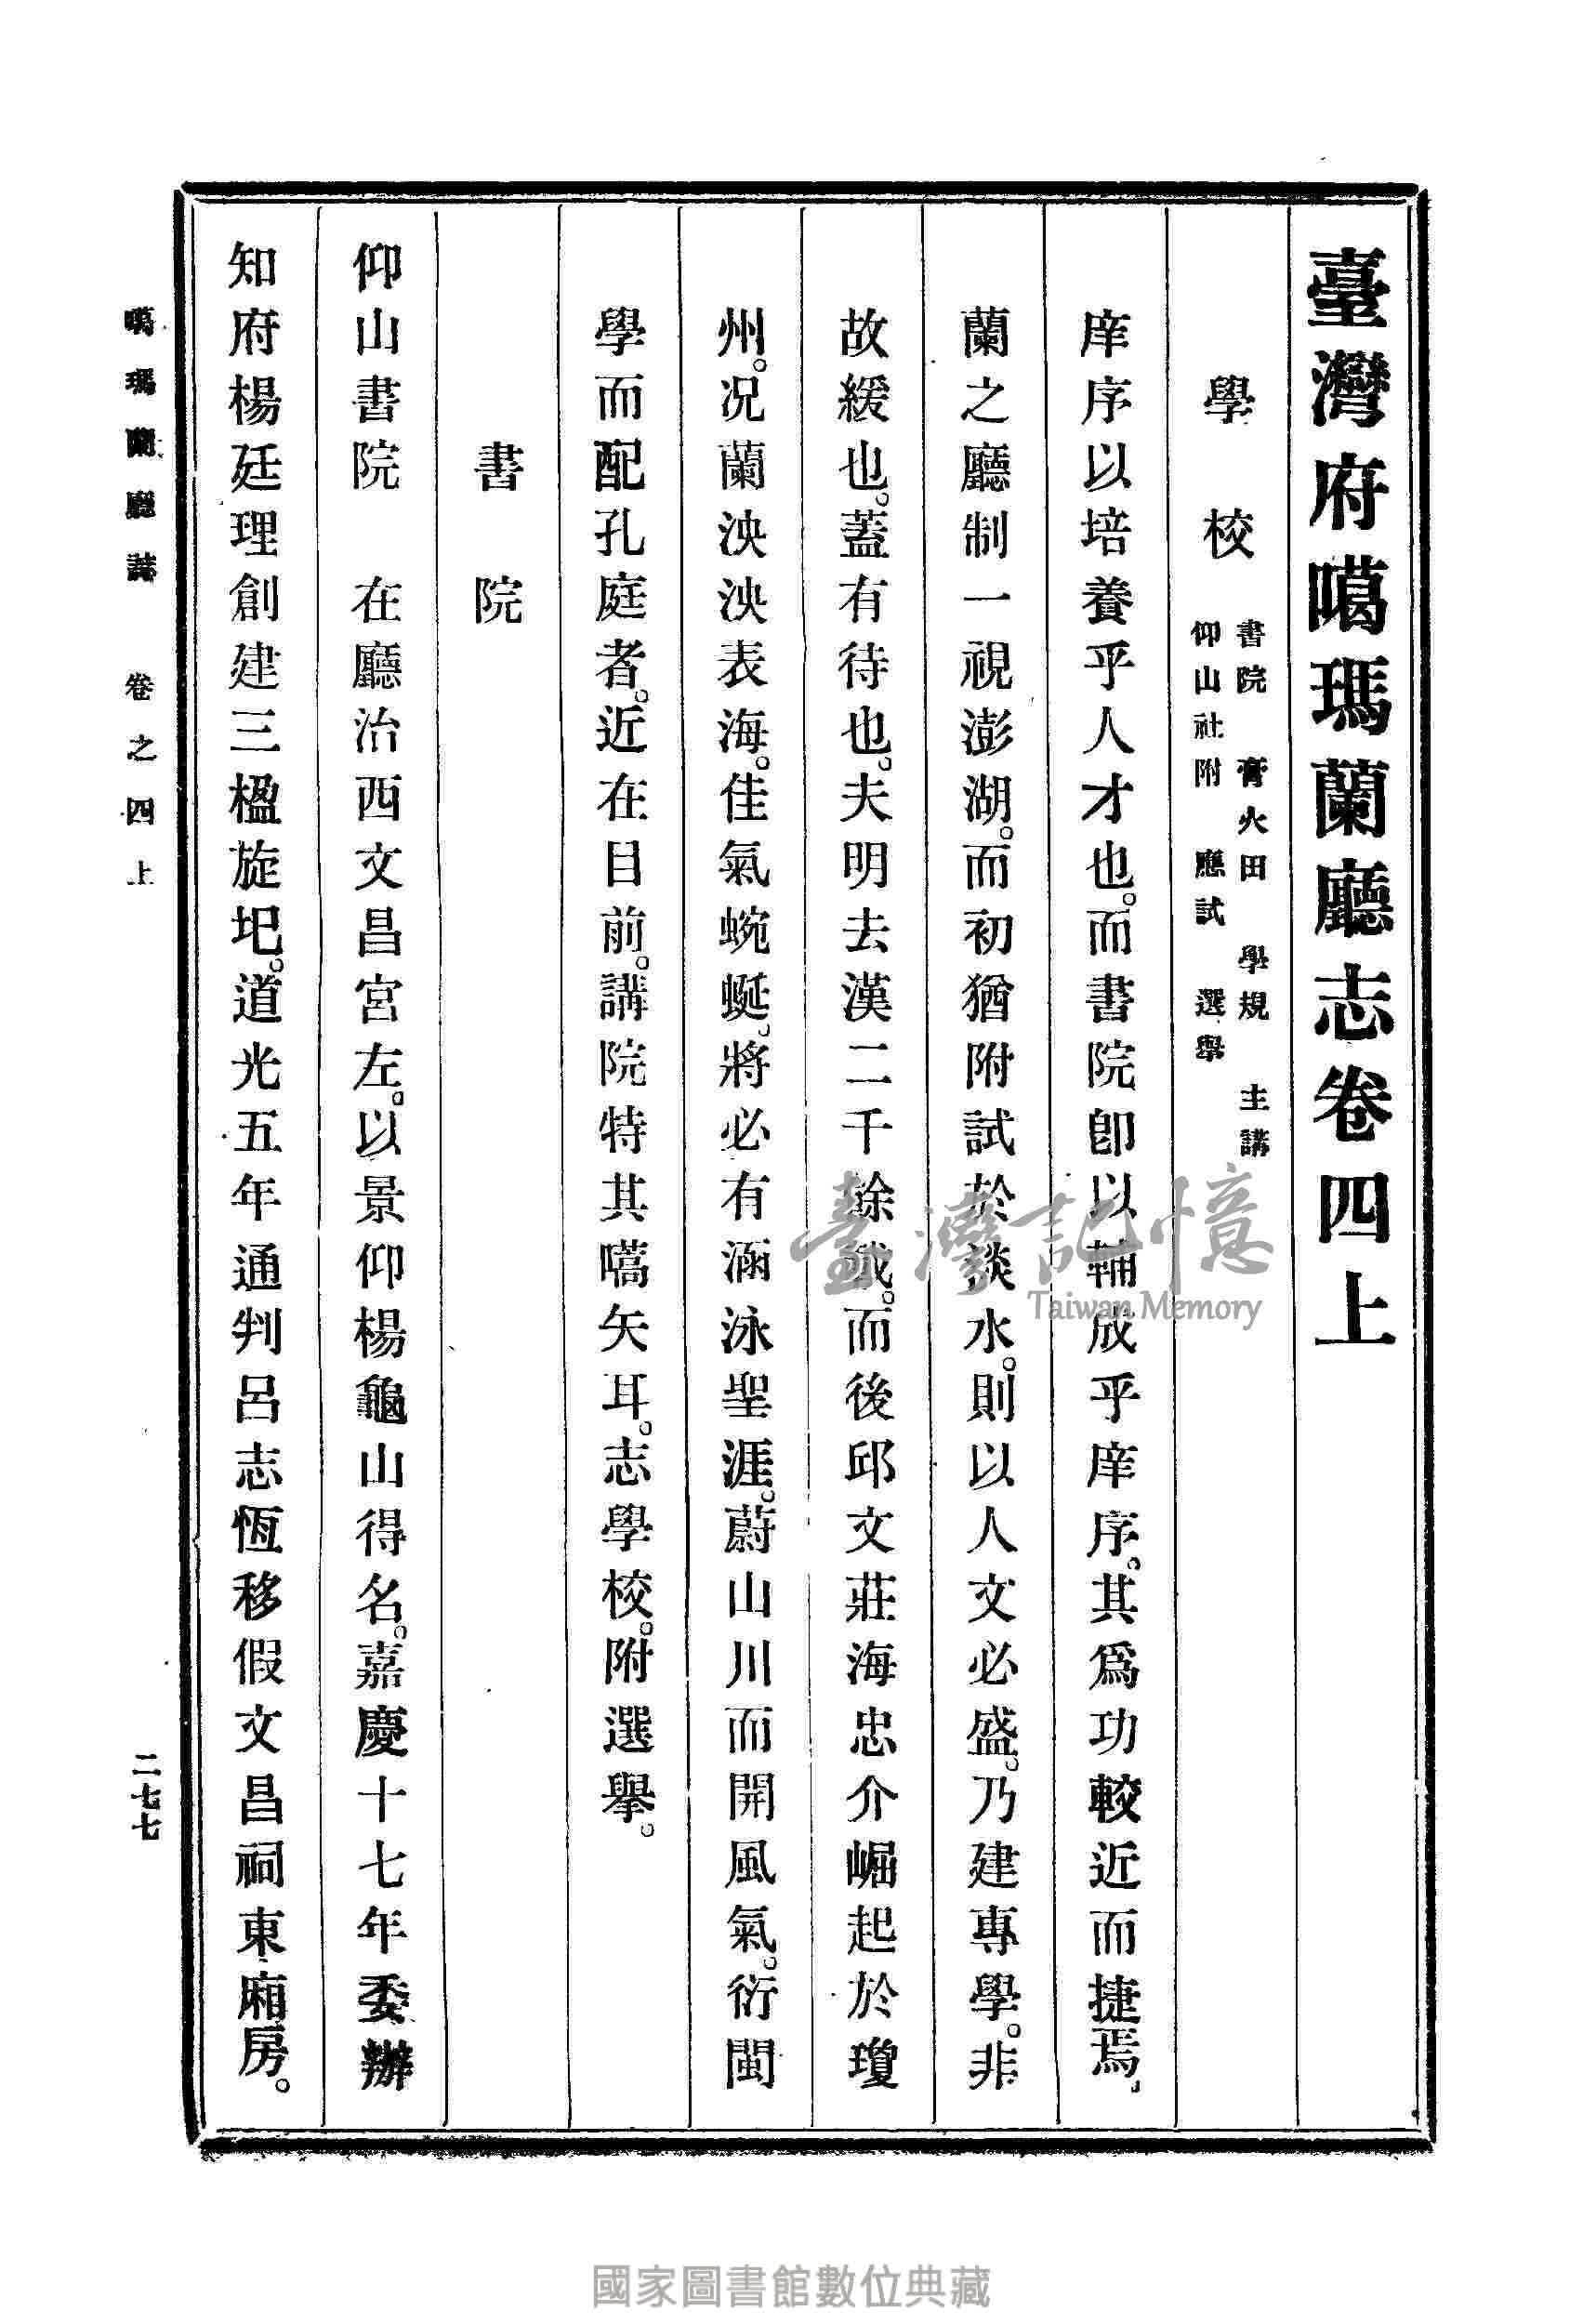 臺灣府噶瑪蘭廳志卷四上
學校
書院 膏火田 學規 主講
仰山社附 應試 選舉
庠序以培養乎人才也。而書院卽以輔成乎庠序。其爲功較近而捷焉。
蘭之廳制一視澎湖。而初猶附試於淡水。則以人文必盛。乃建專學。非
故緩也。蓋有待也。夫明去漢二千餘載。而後邱文莊海忠介崛起於瓊
州。况蘭泱泱表海。佳氣蜿蜒。將必有涵泳聖涯。蔚山川而開風氣。衍閩
學而配孔庭者。近在目前。講院特其嚆矢耳。志學校。附選舉。
書院
仰山書院 在廳治西文昌宮左。以景仰楊龜山得名。嘉慶十七年委辦
知府楊廷理創建三楹旋圯。道光五年通判呂志恆移假文昌祠東廂房。
噶瑪蘭廳誌 卷之四上
二七七
臺灣記憶
Taiwan Memory
國家圖書館數位典藏